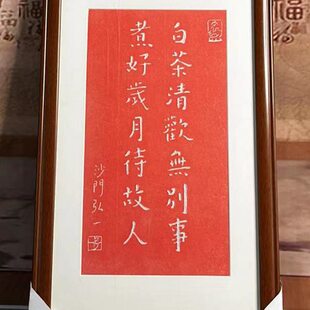 白茶清歡無別事
煮好歲月待故人
沙門弘一